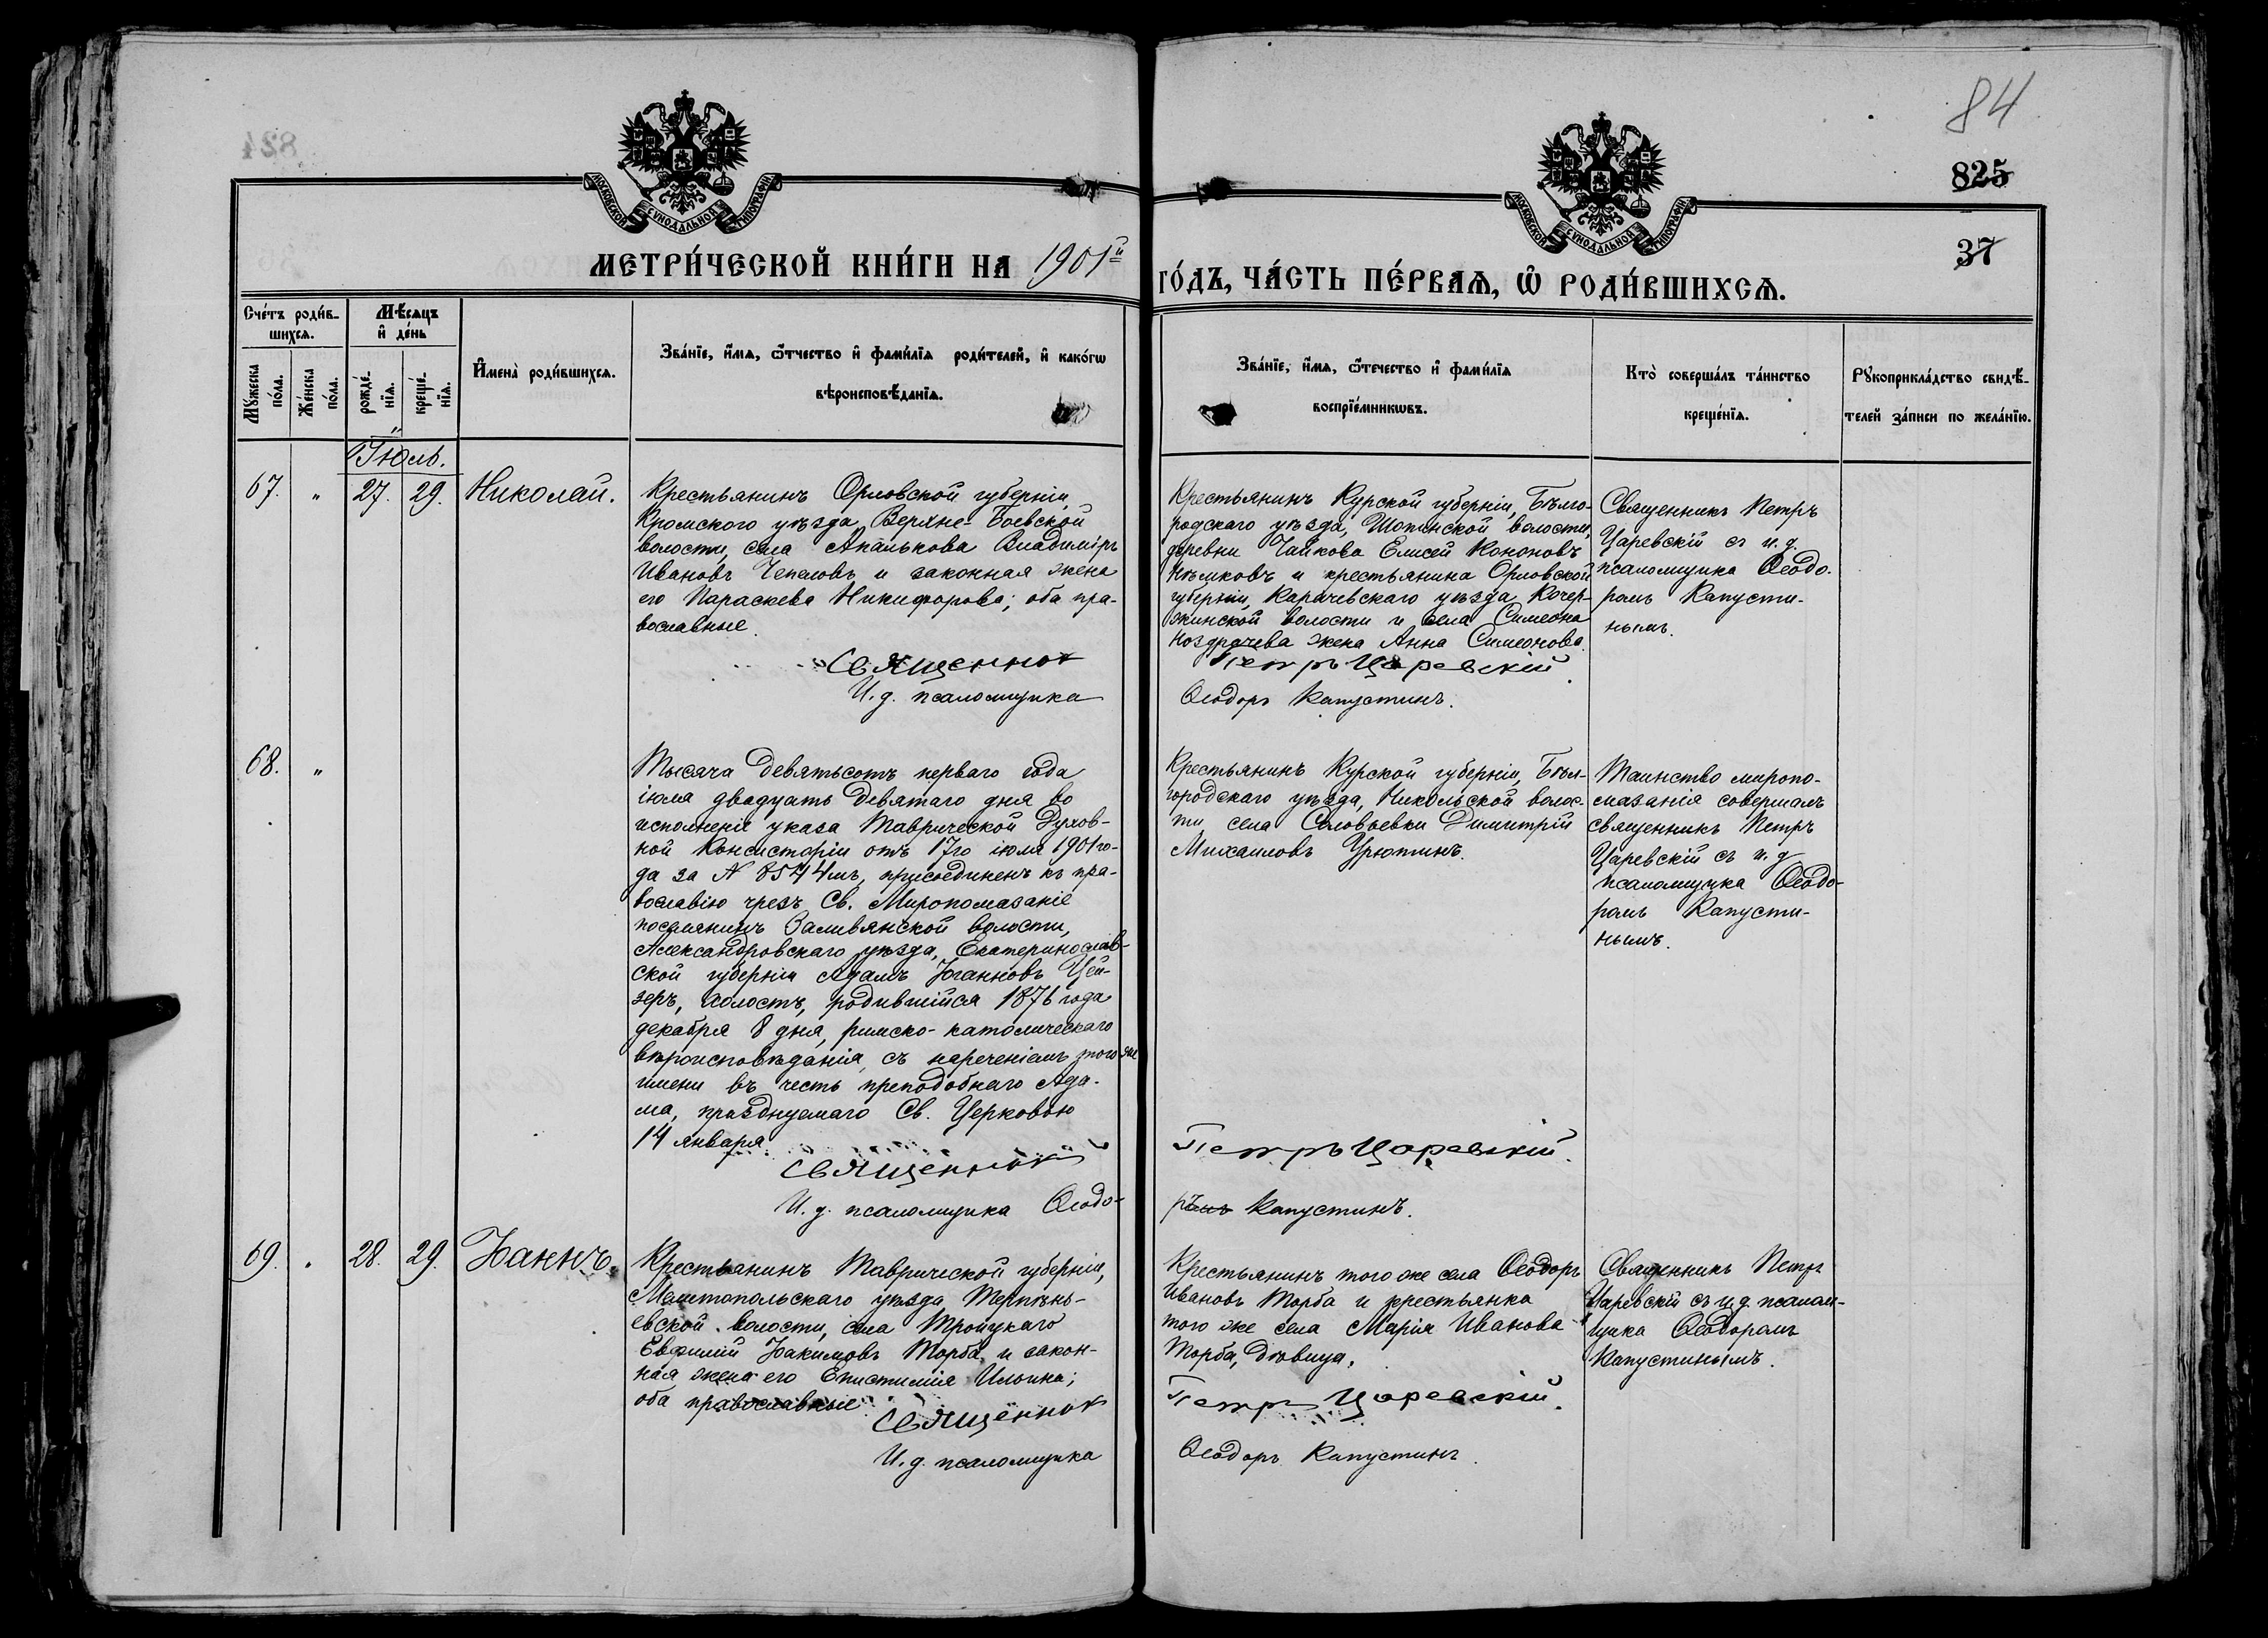 84
825
37
МОСКОВСКОЙ СѴНОДАЛЬНОЙ ТИПОГРАФІИ
МОСКОВСКОЙ СѴНОДАЛЬНОЙ ТИПОГРАФІИ
МЕТРИ́ЧЕСКОЙ КНИ́ГИ НА 1901й
ГО́ДЪ, ЧА́СТЬ ПЕ́РВАЯ, Ѡ҆ РОДИ́ВШИХСЯ.
Сче́тъ роди́в-
шихся.
Мꙋ́жеска по́ла.
Же́нска по́ла.
Мѣ́сяцъ
и҆ де́нь
рожде́-
нїя.
креще́-
нїя.
И҆мена̀ роди́вшихся.
Зва́нїе, и҆́мя, ѻ҆́тчество и҆ фами́лїя роди́телей, и҆ како́гѡ
вѣроисповѣ́данїя.
Зва́нїе, и҆́мя, ѻ҆́течество и҆ фами́лїя
воспрїе́мникѡвъ.
Кто̀ соверша́лъ та́инство
креще́нїя.
Рꙋкоприкла́дство свидѣ́-
телей за́писи по жела́нїю.
Іюль.
67. " 27. 29. Николай.
Крестьянинъ Орловской губерніи,
Кромского уѣзда, Верхне-Боевской
волости, села Апалькова Владиміръ
Ивановъ Чепеловъ и законная жена
его Параскева Никифорова; оба пра-
вославные.
Священник
И. д. псаломщика
Крестьянинъ Курской губерніи, Бѣлго-
родскаго уѣзда, Шопинской волости,
деревни Чайкова Елисей Кононовъ
Нѣмковъ и крестьянина Орловской
губерніи, Карачевскаго уѣзда, Кочер-
жинской волости и села Симеона
Ноздрачева жена Анна Симеонова.
Петръ Царевскій.
Ѳеодоръ Капустинъ.
Священникъ Петръ
Царевскій съ и. д.
псаломщика Ѳеодо-
ромъ Капусти-
нымъ.
68. "
Тысяча девятьсотъ перваго года
іюля двадцать девятаго дня во
исполненіе указа Таврической Духов-
ной Консисторіи отъ 17го іюля 1901 го-
да за N 8544мъ, присоединенъ къ пра-
вославію чрезъ Св. Миропомазаніе
поселянинъ Заливянской волости,
Александровскаго уѣзда, Екатеринослав-
ской губерніи Адамъ Іоганновъ Цей-
зеръ, холостъ, родившійся 1876 года
декабря 8 дня, римско-католическаго
вѣроисповѣданія, съ нареченіемъ того же
имени въ честь преподобнаго Ада-
ма, празднуемаго Св. Церковью
14 января.
Священник
И. д. псаломщика Ѳеодо-
Крестьянинъ Курской губерніи, Бѣл-
городскаго уѣзда, Никольской волос-
ти села Соловьевки Димитрій
Михаиловъ Урютинъ.
Петръ Царевскій.
ръ Капустинъ.
Таинство миропо-
мазанія совершалъ
священникъ Петръ
Царевскій съ и. д.
псаломщика Ѳеодо-
ромъ Капусти-
нымъ.
69. " 28. 29. Іоаннъ.
Крестьянинъ Таврической губерніи,
Мелитопольскаго уѣзда Терпѣнь-
евской волости, села Троицкаго
Евфимій Іоакимовъ Торба и закон-
ная жена его Епистимія Ильина;
оба православные
Священник
И. д. псаломщика
Крестьянинъ того же села Ѳеодоръ
Ивановъ Торба и крестьянка
того же села Марія Иванова
Торба, дѣвица.
Петръ Царевскій.
Ѳеодоръ Капустинъ.
Священникъ Петръ
Царевскій съ и. д. псалом-
щика Ѳеодоромъ
Капустинымъ.